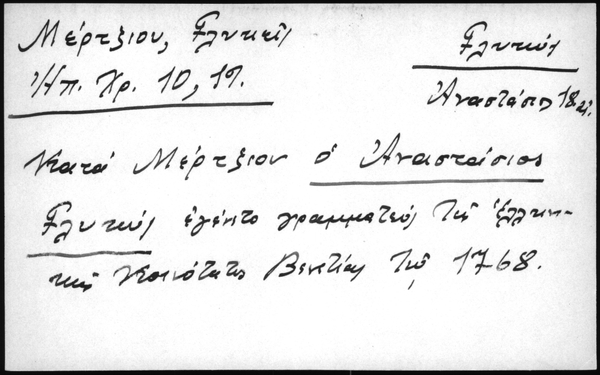 Μέρτζιου, Γλυκεῖς
Ἠπ. Χρ. 10, 19.
Γλυκύς
Ἀναστάσιος 18 αἰ.
Κατά Μέρτζιον ὁ Ἀναστάσιος
Γλυκύς ἐγένετο γραμματεύς τῆς ἑλλην-
κῆς Κοινότητος Βενετίας τῷ 1768.